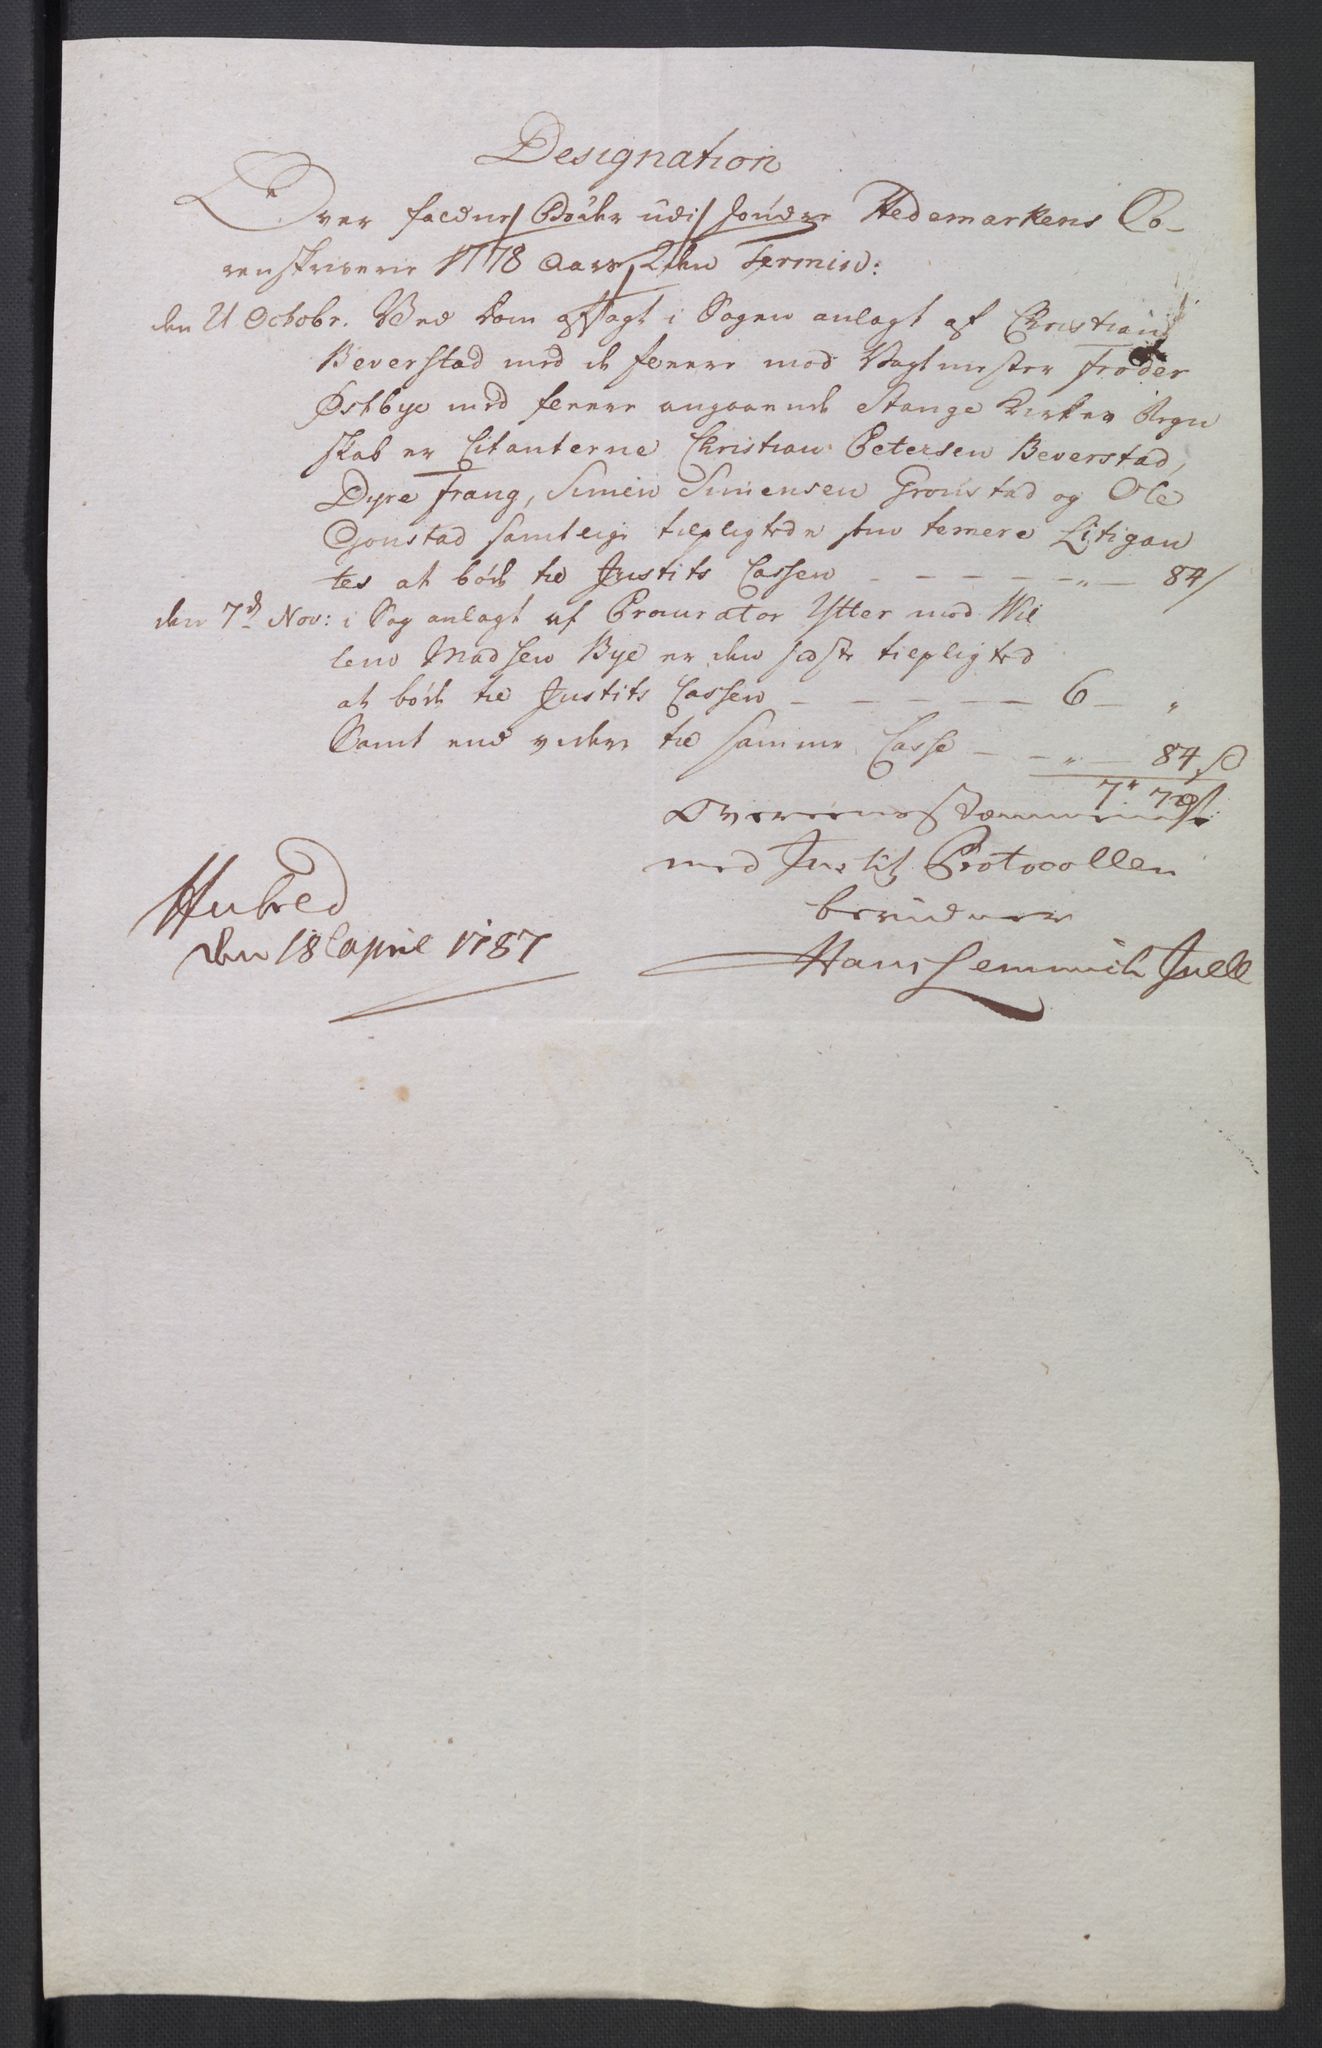 Designation
Over faldne Bøder udi Søndre Hedemarkens So-
renskriverie 1778 Aars 2den Termin:
den 21 Octobr. Ved Dom afsagt i Sagen anlagt af Christian
Beverstad med de fleere mod Vagtmester Frøder
Østbye med fleere angaaende Stange Kirkes Regn
skab er Citanterne Christian Petersen Beverstad,
Dyre Frang, Simen Simensen Gronstad og Ole
Gonstad samtlige tilpligtede som temere Litigan
tes at bøde til Justits Cassen - - - - - „ - 84 /
den 7d Nov: i Sag anlagt af Procurator Ytter mod Wil
lem Madsen Bye er den sidste tilpligted
at bøde til Justits Cassen - - - - - 6 - „
Samt end videre til samme Casse - - „ - 84 s
7" 72 s
Overeensstemmende
med Justits Protocollen
bevidner
Hubred
den 18 April 1787
Hans Lemmich Juell